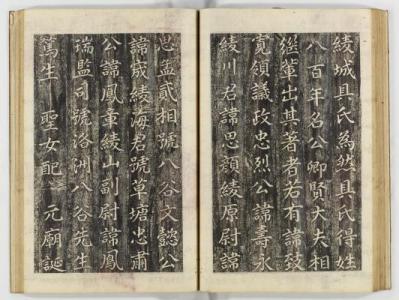 綾城具氏爲然具氏得姓
八百年名公卿賢大夫相
繼輩出其著者若有諱致
寬領議政忠烈公諱壽永
綾川君諱思顔綾原尉諱
思孟貳相號八谷文懿公
諱宬綾海君號草塘忠肅
公諱鳳章綾山副尉諱鳳
瑞監司號洛洲八谷先生
篤生 聖女配 元廟誕